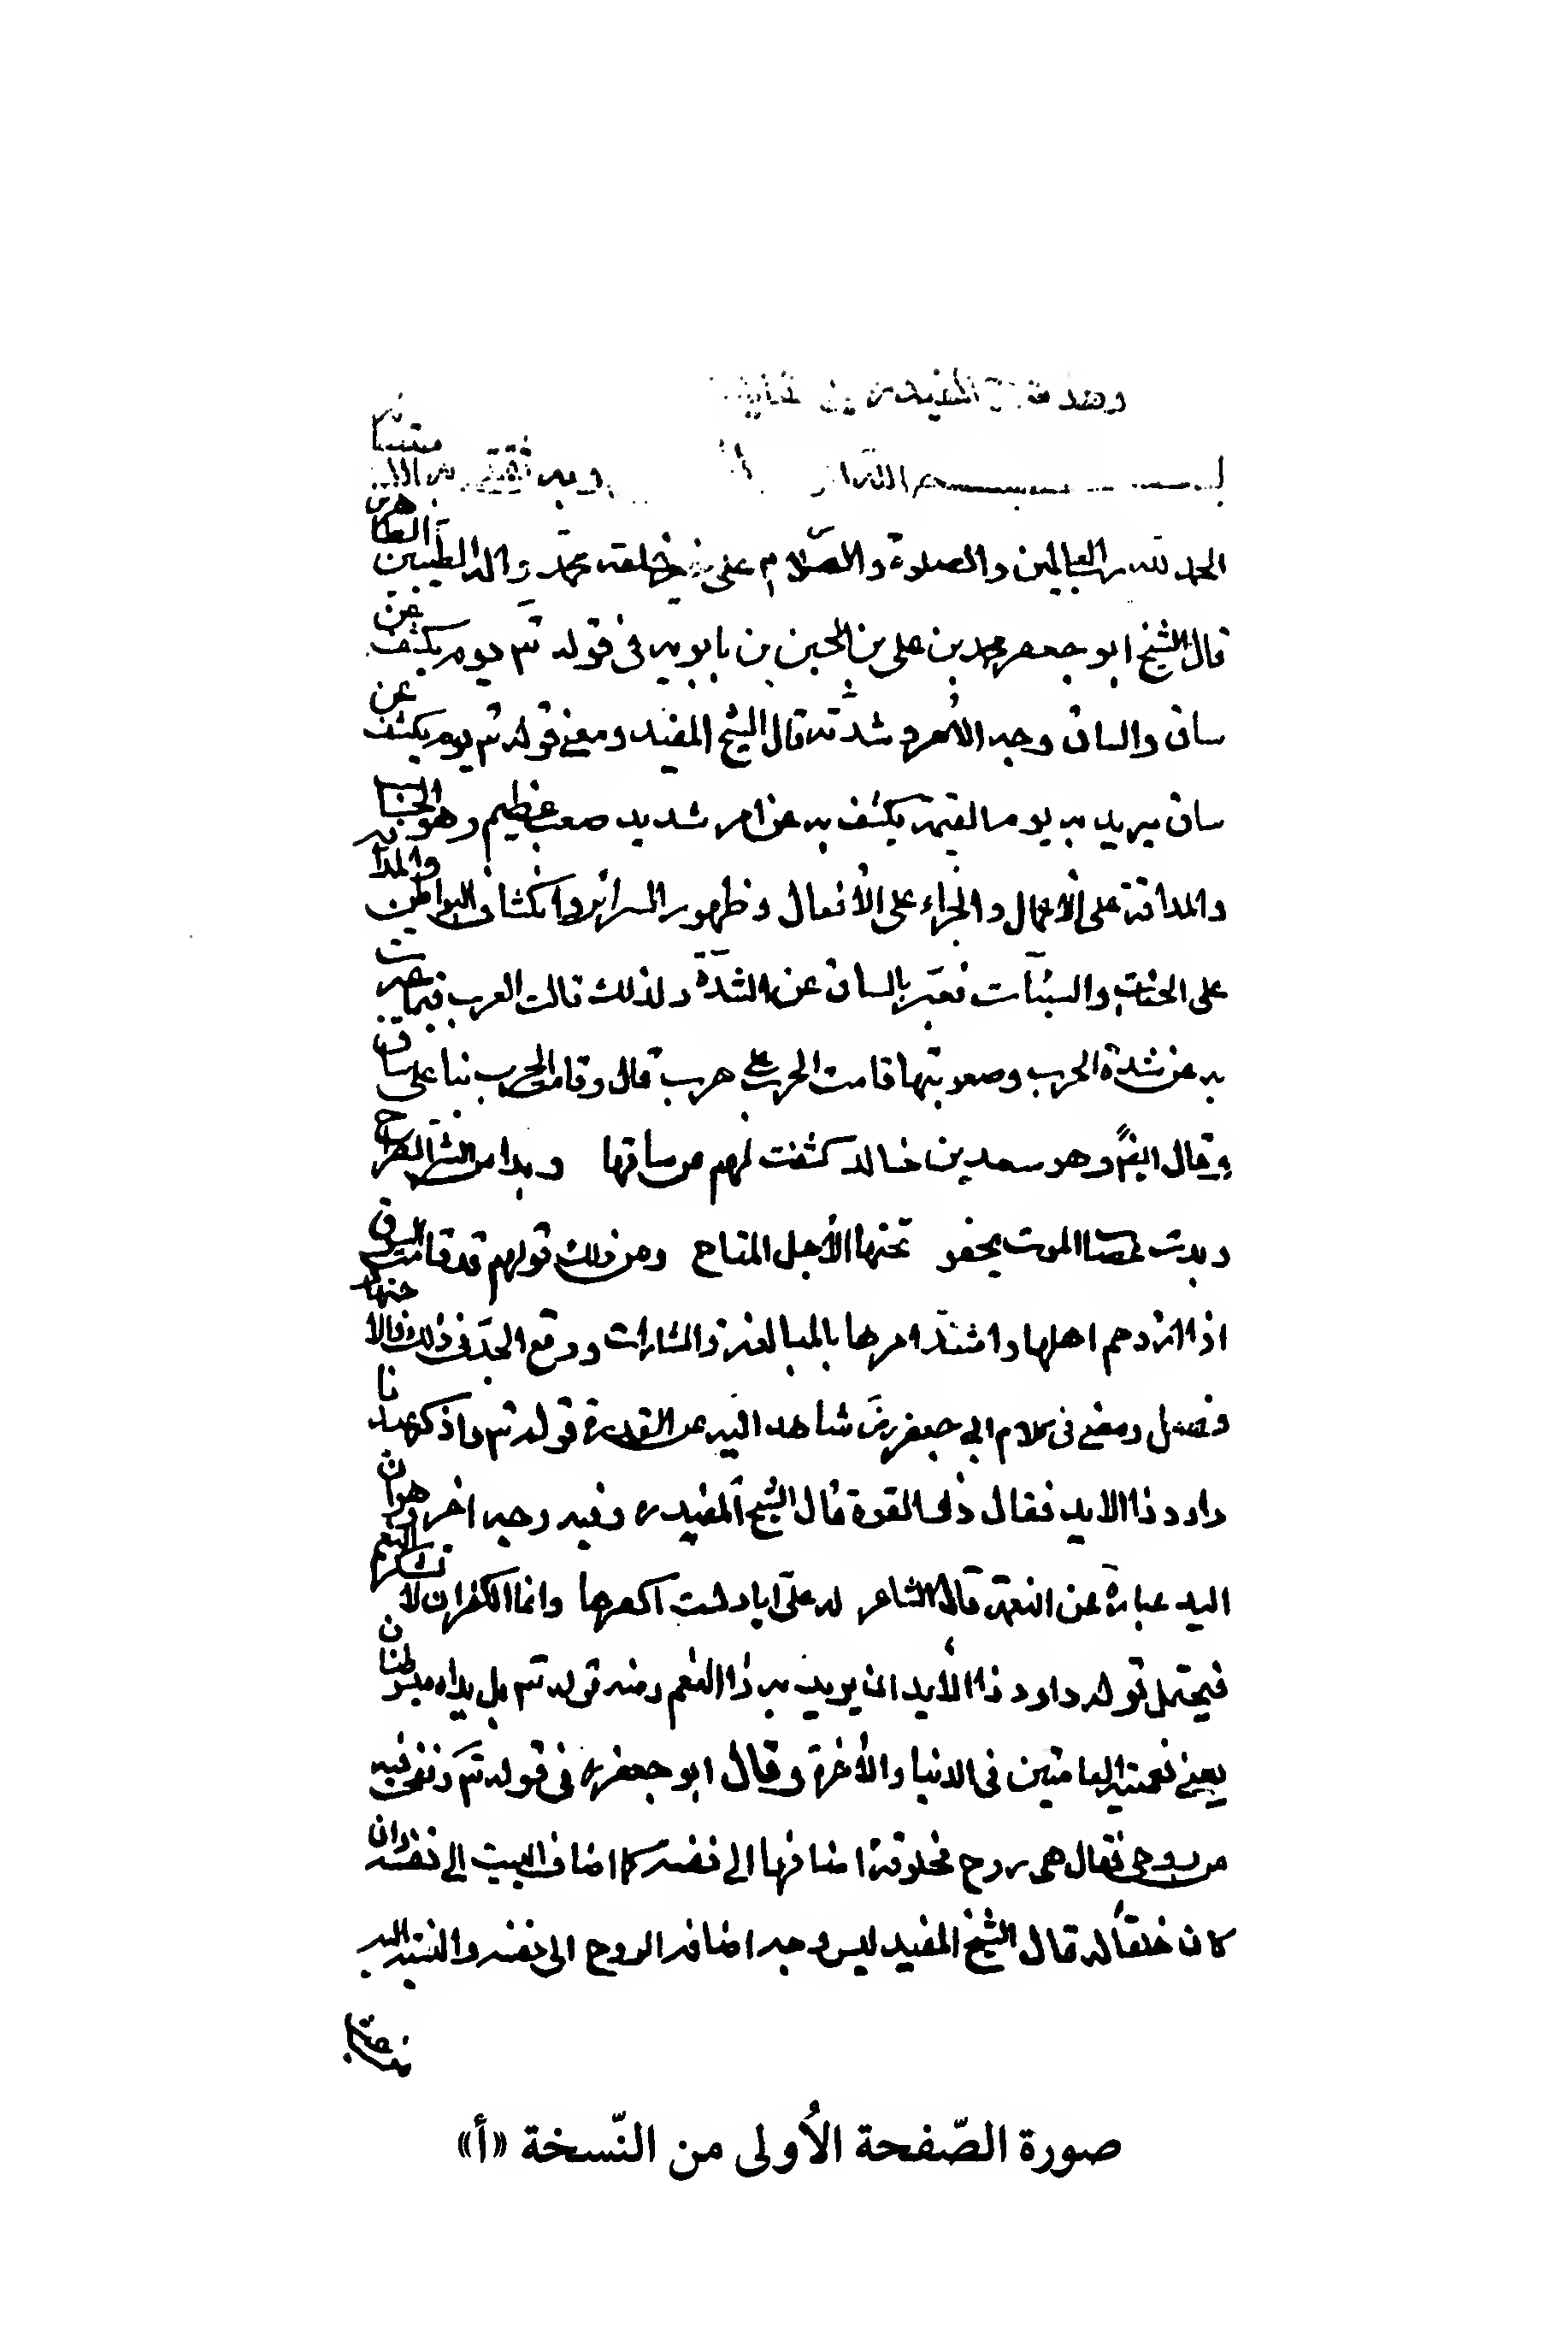 وهذه المفيد
بسم الله وبه ثقتي
الحمد لله رب العالمين والصلوة والسلام على خير خلقه محمد واله الطيبين الطاهرين
قال الشيخ ابو جعفر محمد بن علي بن الحسين بن بابويه في قوله تع يوم يكشف عن
ساق والساق وجه الأمر وشدته قال الشيخ المفيد ومعنى قوله تع يوم يكشف عن
ساق يريد به يوم القيمة يكشف به عن امر شديد صعب عظيم وهو الحساب
والمداقة على الأعمال والجزاء على الأفعال وظهور السرائر وانكشاف البواطن
على الحسنات والسيئآت فعبّر بالساق عن الشدّة ولذلك قالت العرب فيما عبرت
به عن شدة الحرب وصعوبتها قامت الحرب على هرب قال وقامت الحرب بنا على ساق
وقال ايضً وهو سعد بن خالد كشفت لهم عن ساقها وبدا من الشر الصراح
وبدت عصا الموت يخفو تحتها الأجل المتاح ومن ذلك قولهم قد قامت السوق
اذا ازدحم اهلها واشتدّ امرها بالمبالغة والمشارات ووقع الجدّ في ذلك
فصل ومضى في كلام ابي جعفر رض شاهد اليد عن القدرة قوله تع واذكر عبدنا
داود ذا الايد فقال ذو القوة قال الشيخ المفيد ره وفيه وجه اخر وهو ان
اليد عبارة عن النعمة قال الشاعر له عليّ اياد لست اكفرها وانما الكفر ان لا تشكر النعم
فيحتمل قوله داود ذا الأيد ان يريد به ذا النعم ومنه قوله تع بل يداه مبسوطتان
يعني نعمتيه العامتين في الدنيا والأخرة وقال ابو جعفر ره في قوله تع ونفخت فيه
من روحي فقال هي روح مخلوقة اضافها الى نفسه كما اضاف البيت الى نفسه وان
كان خلقاً له قال الشيخ المفيد ليس وجه اضافة الروح الى نفسه والنسبة اليه
صورة الصّفحة الأُولى من النّسخة «أ»